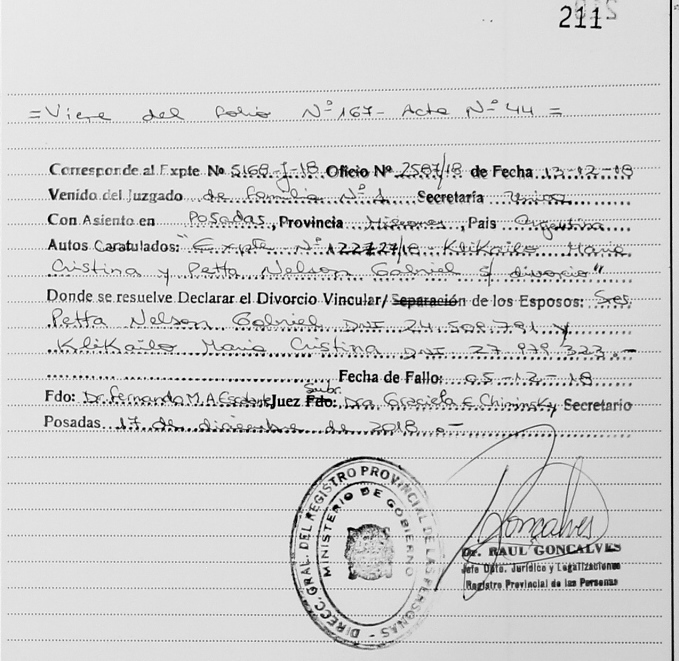 211
= Viene del folio Nº 167 - Acta Nº 44 =
Corresponde al Expte Nº 5168-J-18 Oficio Nº 2587/18 de Fecha 13-12-18
Venido del Juzgado de Familia Nº 1 Secretaría Única
Con Asiento en Posadas, Provincia Misiones, País Argentina
Autos Caratulados: "Expte Nº 122727/18 - Klikailo Maria
Cristina y Petta Nelson Gabriel s/ divorcio"
Donde se resuelve Declarar el Divorcio Vincular/Separación de los Esposos: Sres
Petta Nelson Gabriel DNI 24.509.791 y
Klikailo Maria Cristina DNI 27.979.323.-
Fecha de Fallo: 05-12-18
Fdo: Dr. Fernando M.A. Juez Subr. Fdo: Dra. Graciela E. Chiminsky Secretario
Posadas 17 de diciembre de 2018.-
DIRECC. GRAL. DEL REGISTRO PROVINCIAL DE LAS PERSONAS
MINISTERIO DE GOBIERNO
Goncalves
Dr. RAUL GONCALVES
Jefe Dpto. Jurídico y Legalizaciones
Registro Provincial de las Personas